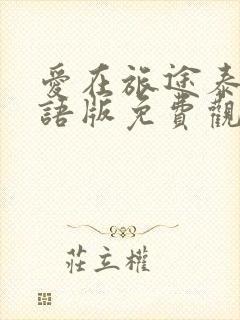 愛在旅途泰
語版免費觀
莊立權